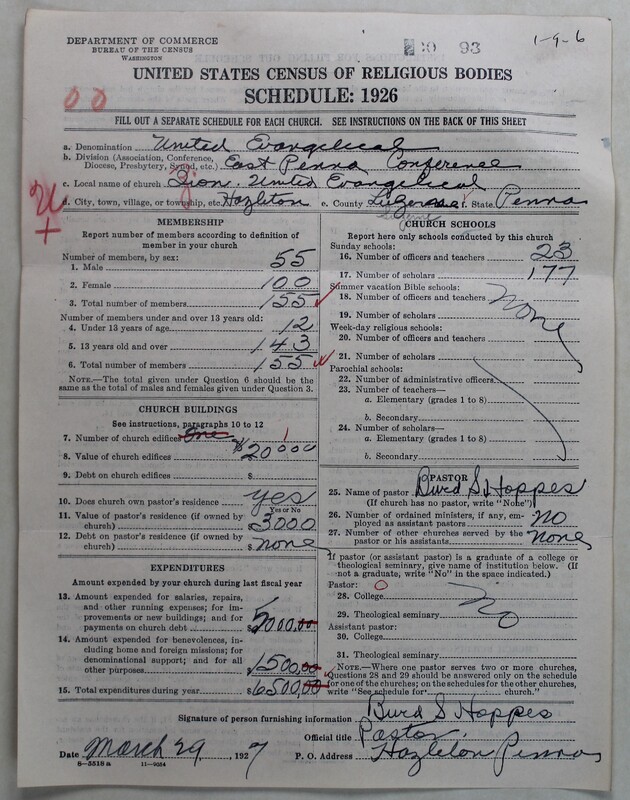 DEPARTMENT OF COMMERCE
BUREAU OF THE CENSUS
WASHINGTON
20 93
1-9-6
UNITED STATES CENSUS OF RELIGIOUS BODIES
SCHEDULE: 1926
00
FILL OUT A SEPARATE SCHEDULE FOR EACH CHURCH. SEE INSTRUCTIONS ON THE BACK OF THIS SHEET
a. Denomination United Evangelical
b. Division (Association, Conference, Diocese, Presbytery, Synod, etc.) East Penna Conference
c. Local name of church Zion United Evangelical
d. City, town, village, or township, etc. Hazleton e. County Luzerne f. State Penna
Luzerne
MEMBERSHIP
Report number of members according to definition of
member in your church
Number of members, by sex:
1. Male 55
2. Female 100
3. Total number of members 155
Number of members under and over 13 years old:
4. Under 13 years of age 12
5. 13 years old and over 143
6. Total number of members 155
NOTE.—The total given under Question 6 should be
same as the total of males and females given under Question 3.
CHURCH BUILDINGS
See instructions, paragraphs 10 to 12
7. Number of church edifices One 1
8. Value of church edifices $20000
9. Debt on church edifices $
10. Does church own pastor's residence yes
Yes or No
11. Value of pastor's residence (if owned by
church) $3000
12. Debt on pastor's residence (if owned by
church) $none
EXPENDITURES
Amount expended by your church during last fiscal year
13. Amount expended for salaries, repairs,
and other running expenses; for im-
provements or new buildings; and for
payments on church debt $5000.00
14. Amount expended for benevolences, in-
cluding home and foreign missions; for
denominational support; and for all
other purposes $1500.00
15. Total expenditures during year $6500.00
CHURCH SCHOOLS
Report here only schools conducted by this church
Sunday schools:
16. Number of officers and teachers 23
17. Number of scholars 177
Summer vacation Bible schools:
18. Number of officers and teachers
none
19. Number of scholars
Week-day religious schools:
20. Number of officers and teachers
21. Number of scholars
Parochial schools:
22. Number of administrative officers
23. Number of teachers—
a. Elementary (grades 1 to 8)
b. Secondary
24. Number of scholars—
a. Elementary (grades 1 to 8)
b. Secondary
PASTOR
25. Name of pastor Burd S Hoppes
(If church has no pastor, write "None")
26. Number of ordained ministers, if any, em-
ployed as assistant pastors no
27. Number of other churches served by the
pastor or his assistants none
If pastor (or assistant pastor) is a graduate of a college or
theological seminary, give name of institution below. (If
not a graduate, write "No" in the space indicated.)
Pastor: 0
28. College
No
29. Theological seminary
Assistant pastor:
30. College
31. Theological seminary
NOTE.—Where one pastor serves two or more churches,
Questions 28 and 29 should be answered only on the schedule
for one of the churches; on the schedules for the other churches,
write "See schedule for church."
Signature of person furnishing information Burd S Hoppes
Official title Pastor
Date March 29, 1927 P. O. Address Hazleton Penna
8—5518 a 11—9054